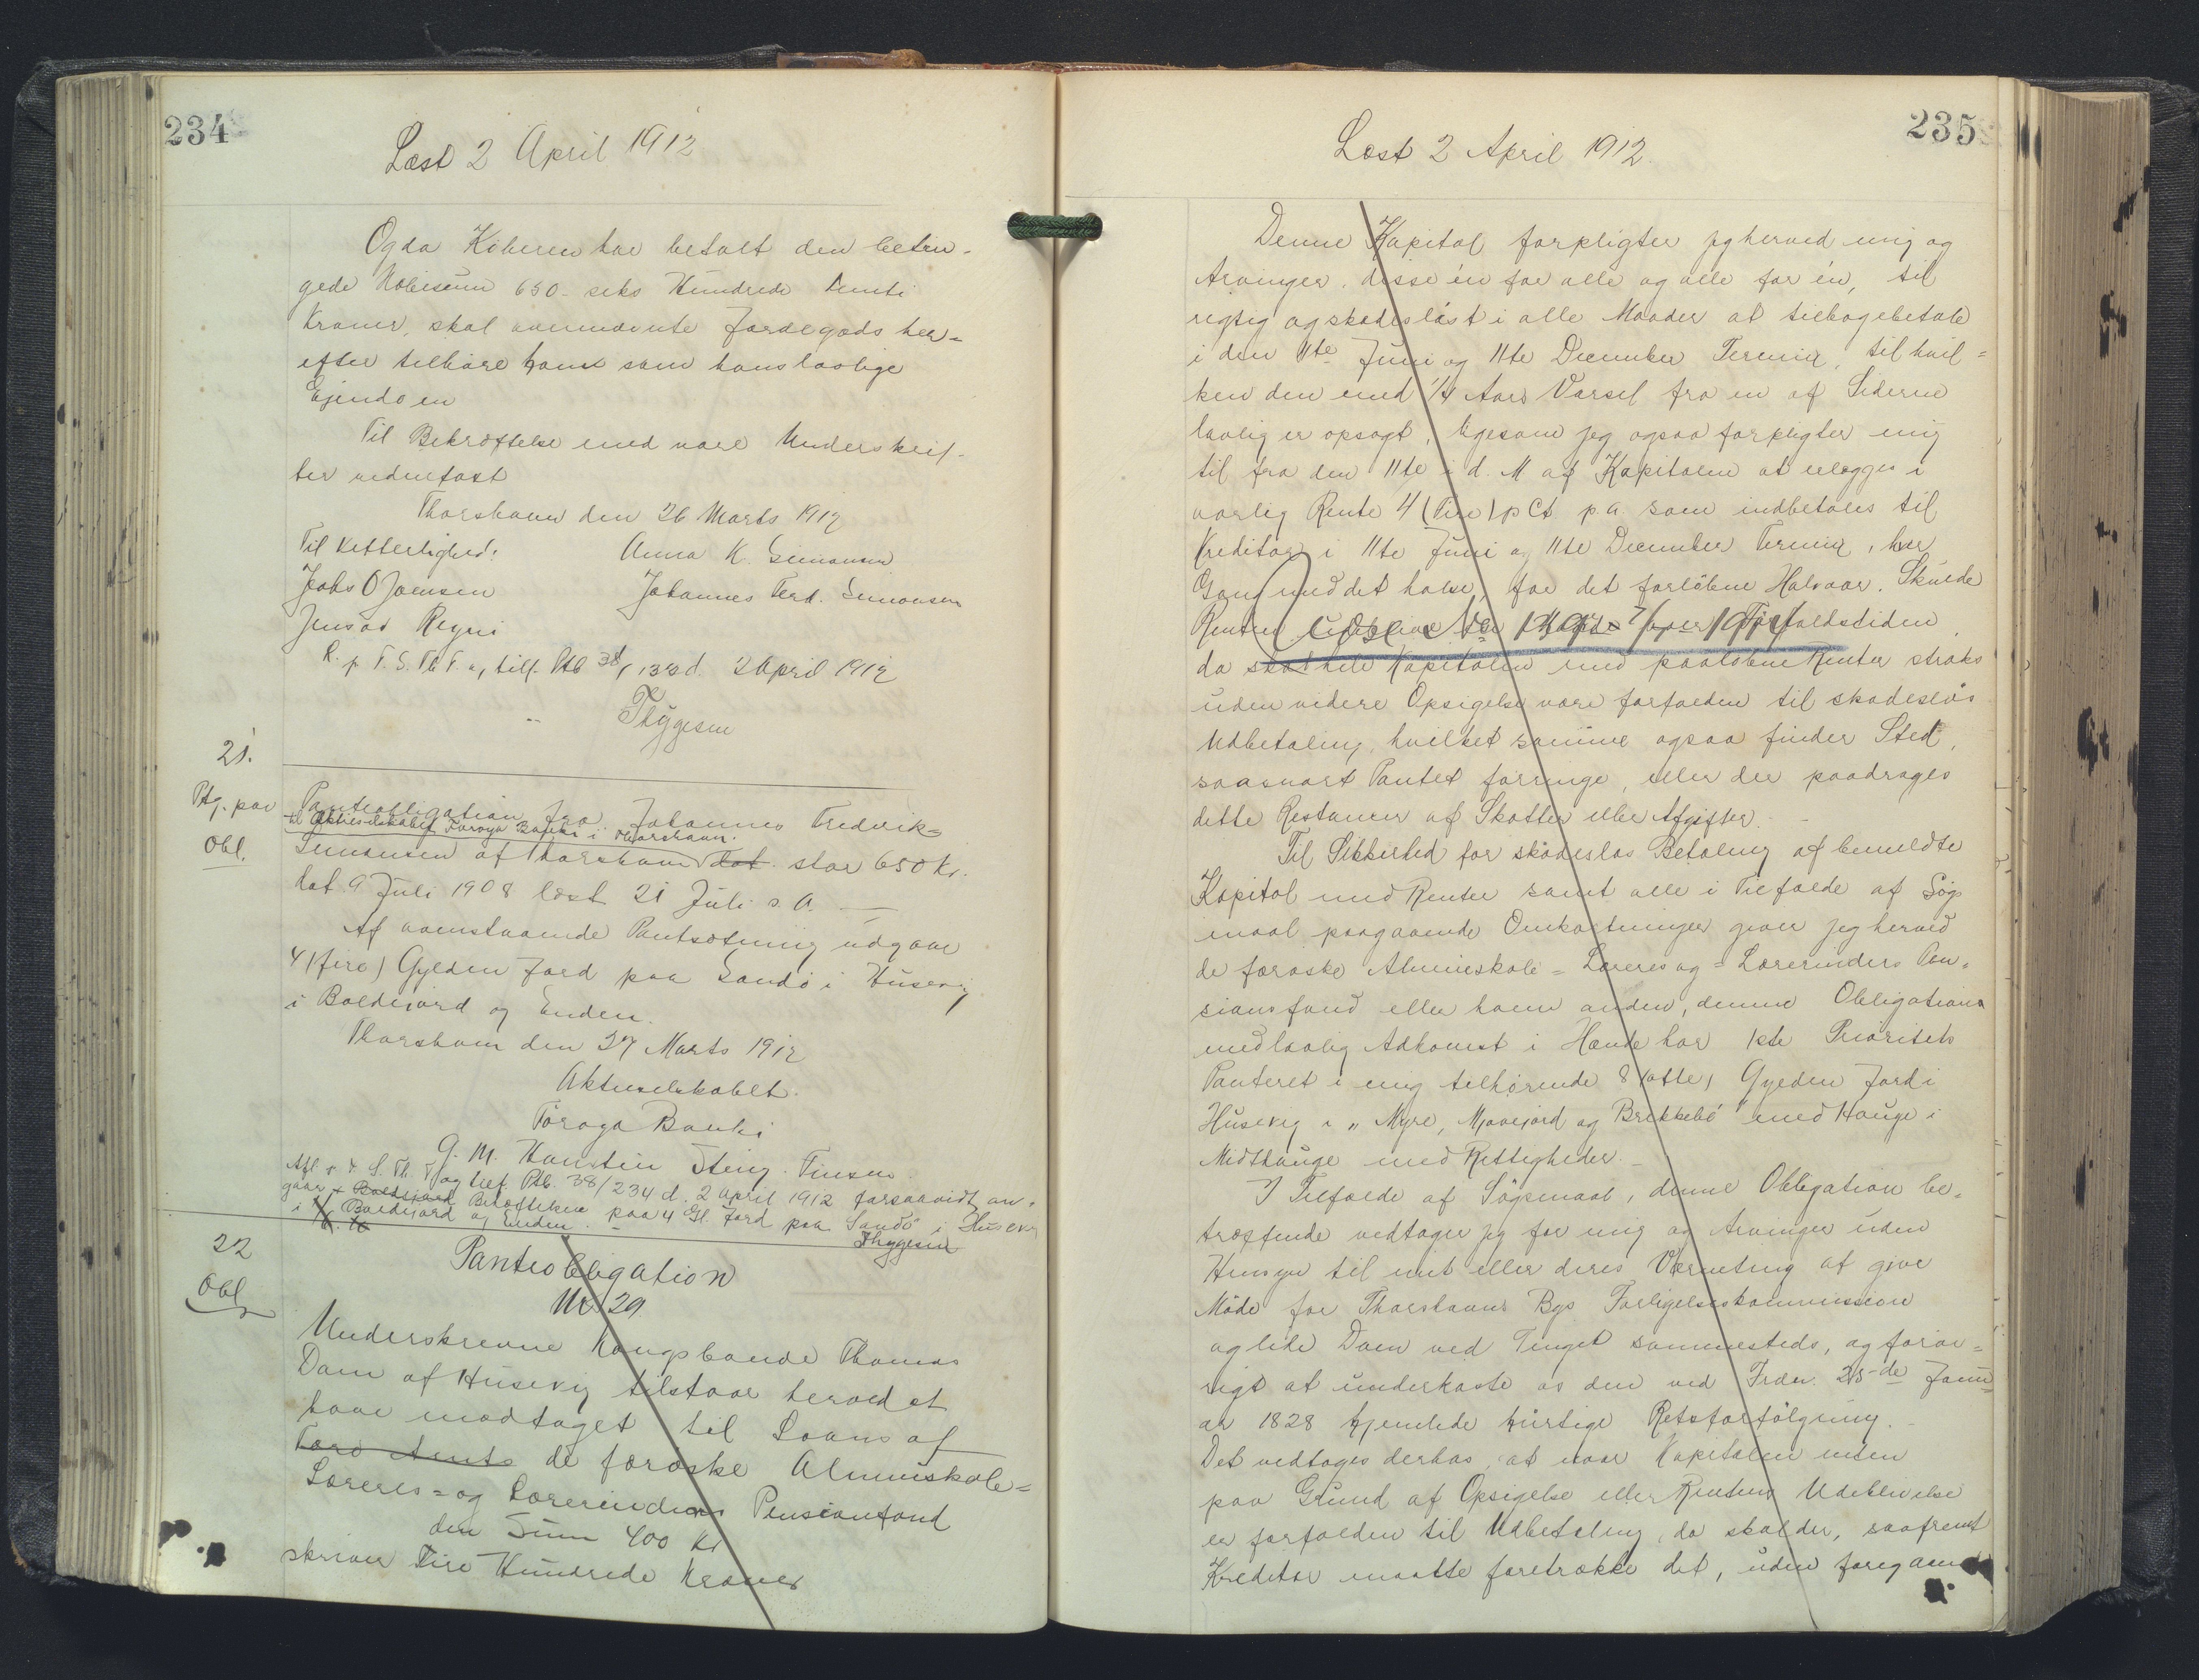 234
Læst 2 April 1912
Og da Köberen har betalt den betin-
gede Köbesum 650 - seks Hundrede femti
Kroner, skal ovennævnte Jordegods her-
efter tilhøre ham som hans lovlige
Ejendoen
Til Bekræftelse med vore Underskrif-
ter vedenfast
Thorshavn den 26 Marts 1912
Til Vitterlighed: Anna K. Simonsen
Jacob O Joensen Johannes Fred. Simonsen
Jensas Regni
R. p. F. S. Th. T. og tilf. Ptb 38/ 133 d. 2 April 1912
Thygesen
21.
Ptg. paa
Obl.
Panteobligation fra Johannes Fredrik-
til Aktieselskabet Føroya Banki i Thorshavn
Simonsen af Thorshavn Dat stor 650 Kr.
dat 9 Juli 1908 læst 21 Juli s. A. —
Af ovenstaaende Pantsætning udgaar
4 (fire) Gylden Jord paa Sandö i Husevig
i Boldejord og Enden.
Thorshavn den 27 Marts 1912
Aktieselskabet
Föroya Banki
G. M. Hanstein Steing. Finsen
Afl. v. F. S. Th. T og tilf. Ptb. 38/234 d. 2 April 1912 forsaavidt an-
gaar Boldejord Behæftelsen paa 4 Gl. Jord paa Sandö i Husevig
i Boldejord og Enden. -
Thygesen
22
Obl
Panteobligation
No 29.
Underskrevne Kongsbonde Thomas
Dam af Husevig tilstaar herved at
have modtaget til Laans af
Færø Amts de færøske Almueskole-
Læreres- og Lærerinders Pensionfond
den Sum 400 Kr
skriver Fire Hundrede Kroner
235
Læst 2 April 1912.
Denne Kapital forpligter jeg herved mig og
Arvinger, disse én for alle og alle for én, til
rigtig og skadesløst i alle Maader at tilbagebetale
i den 11te Juni og 11te December Termin, til hvil-
ken den med 1/4 Aars Varsel fra en af Siderne
lovlig er opsagt, ligesom jeg ogsaa forpligter mig
til fra den 11te i d. M af Kapitalen at erlægges i
aarlig Rente 4 (Fire) p Ct. p. a. som indbetales til
Kreditor i 11te Juni og 11te December Termin, hver
Gang med det halve, for det forløbne Halvaar. Skulde
Renten Forfaldstiden
da skal hele Kapitalen med paaløbne Renter straks
uden videre Opsigelse være forfalden til skadesløs
Udbetaling, hvilket samme ogsaa finder Sted,
saasnart Pantet forringe, eller der paadrages
dette Restancer af Skatter eller Afgifter. -
Til Sikkerhed for skadesløs Betaling af bemeldte
Kapital med Renter samt alle i Tilfælde af Søgs
maal paagaaende Omkostninger giver jeg herved
de færøske Almueskole-Læreres og-Lærerinders Pen-
sionsfond eller hvem anden, denne Obligation
med lovlig Adkomst i Hænde har 1ste Prioritets
Panteret i mig tilhørende 8 (otte) Gylden Jord i
Husevig i „Myre, Mjavejord og Brekkebö" med Hauge i
Midthauge med Rettigheder. -
I Tilfælde af Søgsmaal, denne Obligation be-
træffende vedtager jeg for mig og Arvinger uden
Hensyn til mit eller deres Værneting at give
Møde for Thorshavns Bys Forligelseskommission
og lide Dom ved Tinget sammesteds, og forøv-
rigt at underkaste os den ved Frdn. 25-de Janu-
ar 1828 hjemlede hurtige Retsforfölgning. -
Det vedtages derhos, at naar Kapitalen enten
paa Grund af Opsigelse eller Rentens Udeblivelse
er forfalden til Udbetaling, da skal der, saafremt
Kreditor maatte foretrække det, uden foregaaende